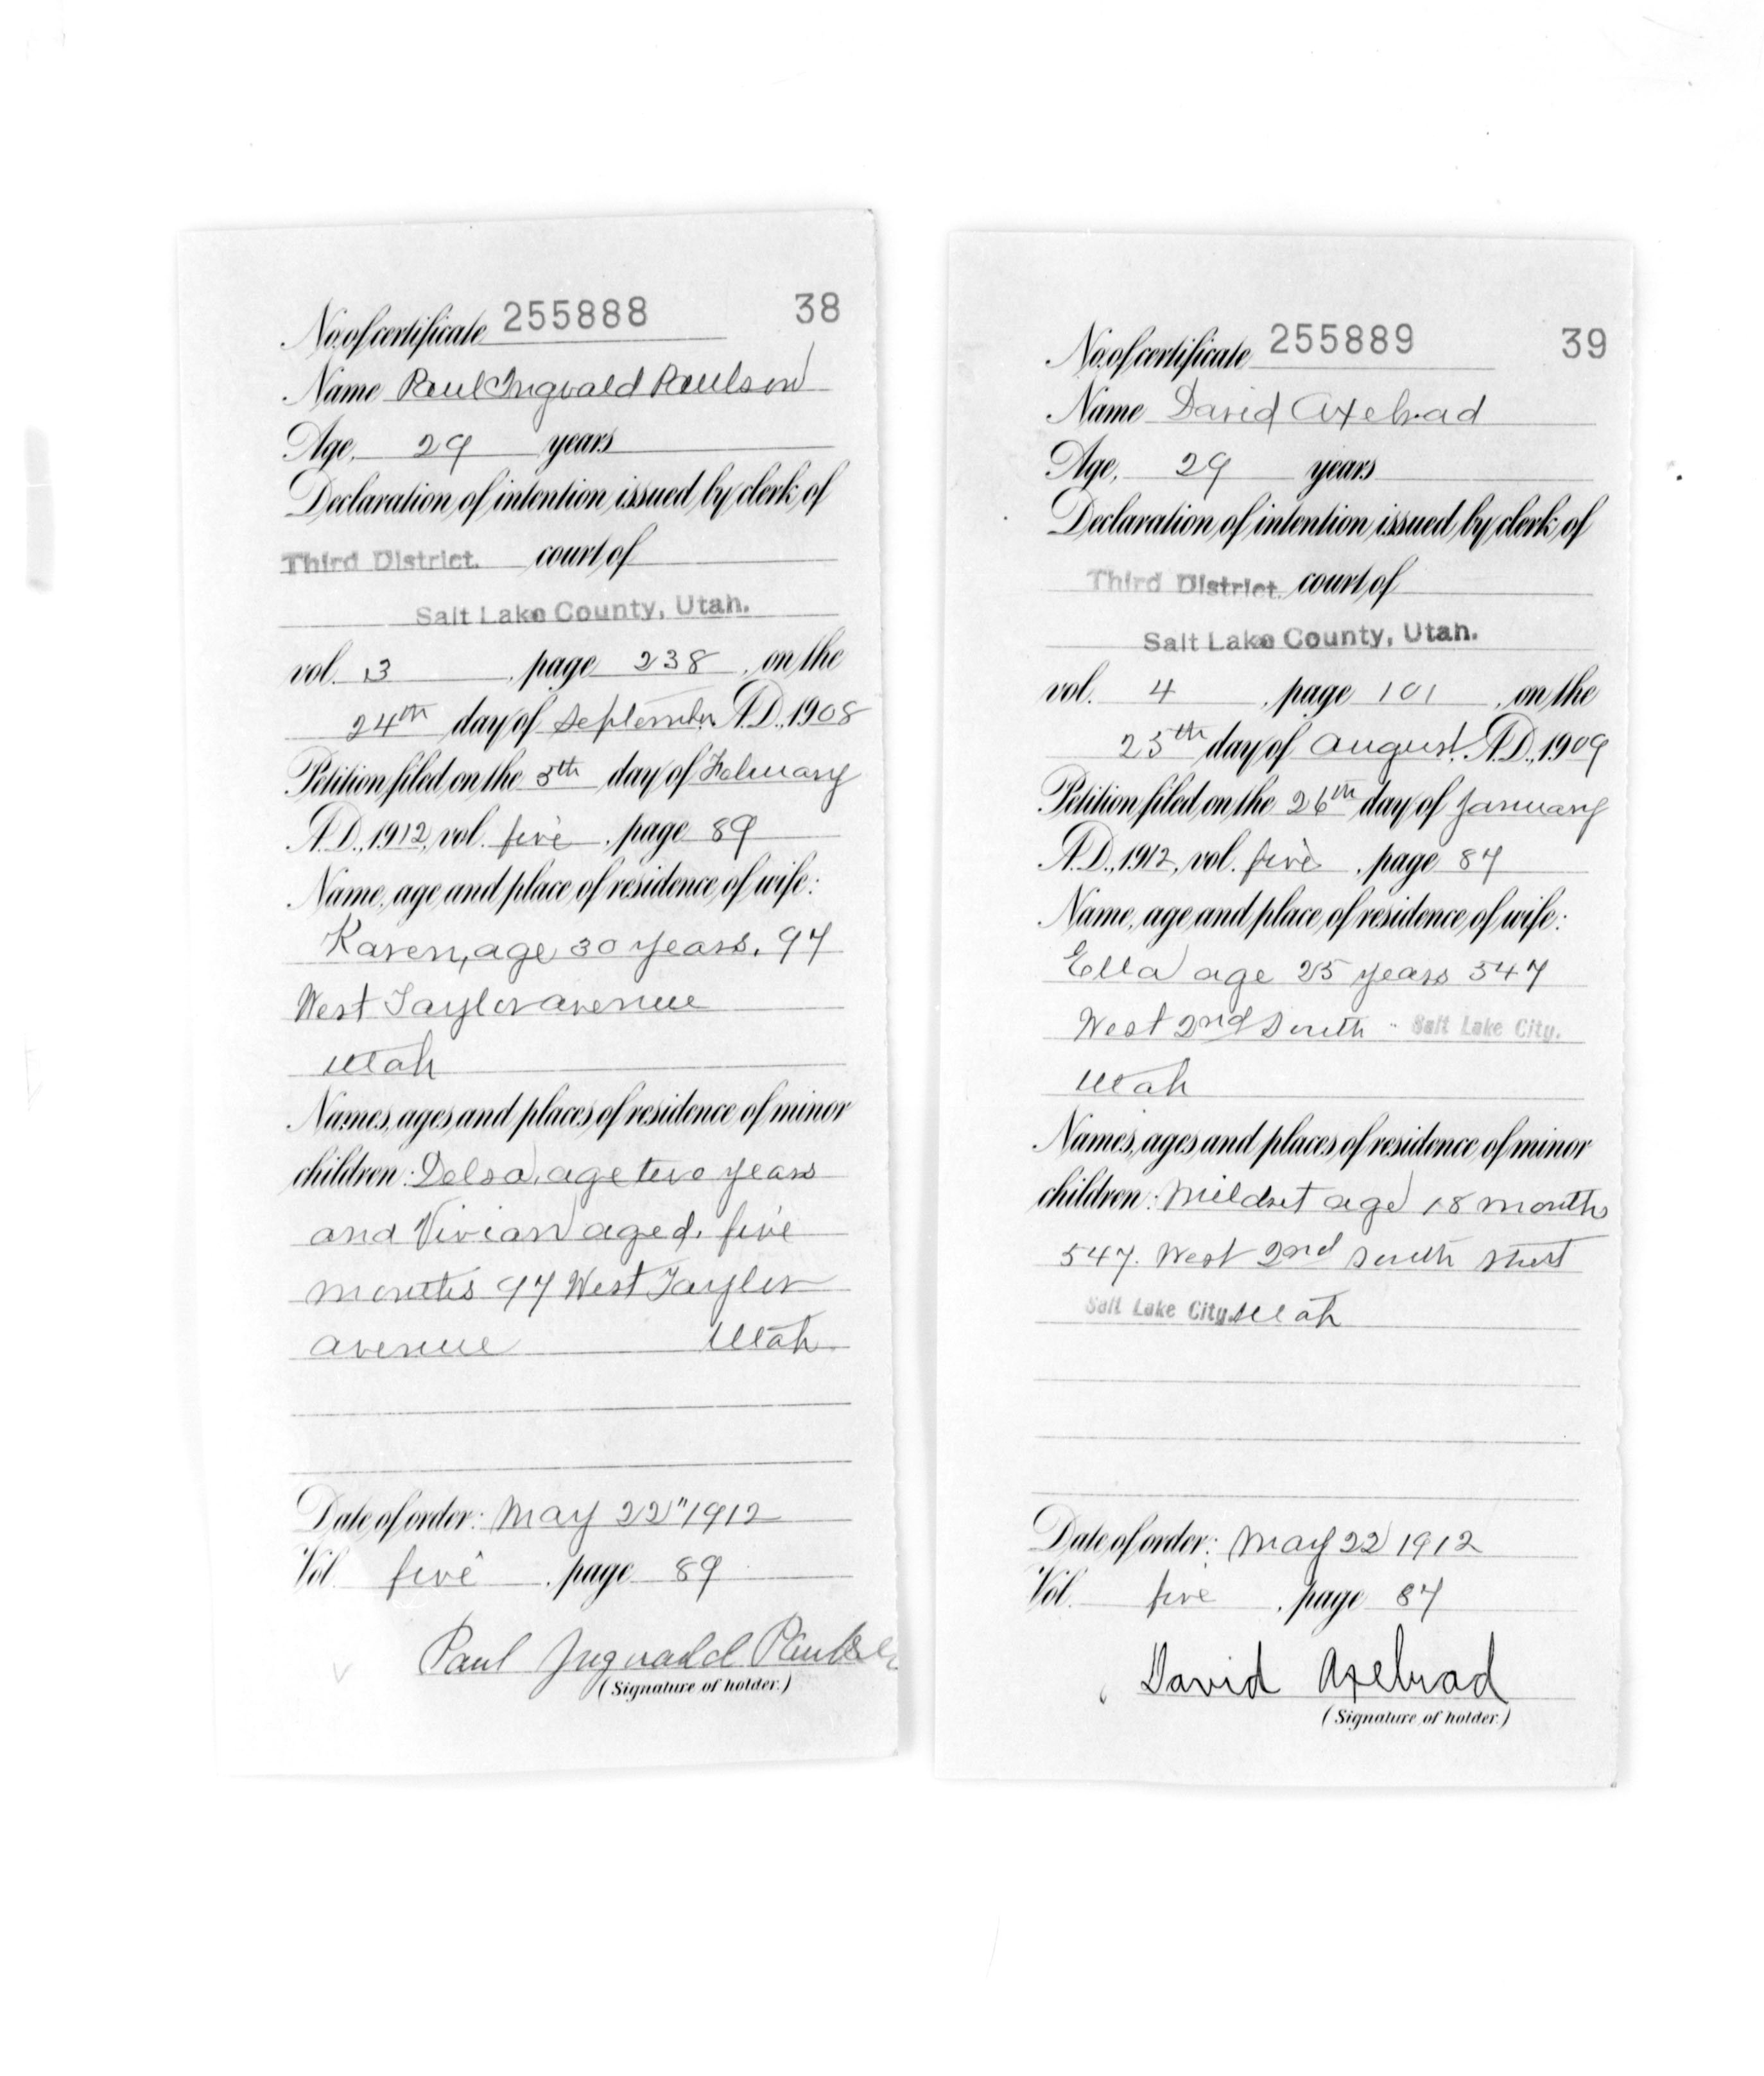 No. of certificate 255888 38
Name Paul Ingvald Paulson
Age, 29 years
Declaration of intention issued by clerk of
Third District. court of
Salt Lake County, Utah.
vol. 3, page 238, on the
24th day of September A.D., 1908
Petition filed on the 5th day of February
A.D., 1912, vol. five, page 89
Name, age and place of residence of wife:
Karen, age 30 years. 97
West Taylor avenue
Utah
Names, ages and places of residence of minor
children: Delsa, age two years
and Vivian aged. five
months 97 West Taylor
avenue Utah.
Date of order: May 22" 1912
Vol. five, page 89
Paul Ingvald
(Signature of holder.)
No. of certificate 255889 39
Name David Axelrad
Age, 29 years
Declaration of intention issued by clerk of
Third District. court of
Salt Lake County, Utah.
vol. 4, page 101, on the
25th day of August, A.D., 1909
Petition filed on the 26th day of January
A.D., 1912, vol. five, page 87
Name, age and place of residence of wife:
Ella age 25 years 547
West 2nd South Salt Lake City.
Utah
Names, ages and places of residence of minor
children: Mildret age 18 months
547. West 2nd South Street
Salt Lake City. Utah
Date of order: May 22 1912
Vol. five, page 87
David Axelrad
(Signature of holder.)